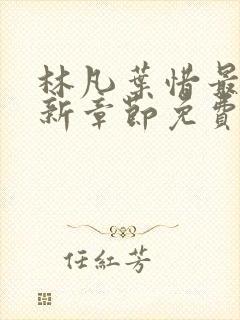 林凡葉惜最
新章節免費
任紅芳